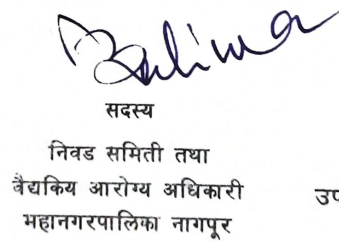 सदस्य
निवड समिती तथा
वैद्यकिय आरोग्य अधिकारी
महानगरपालिका नागपूर